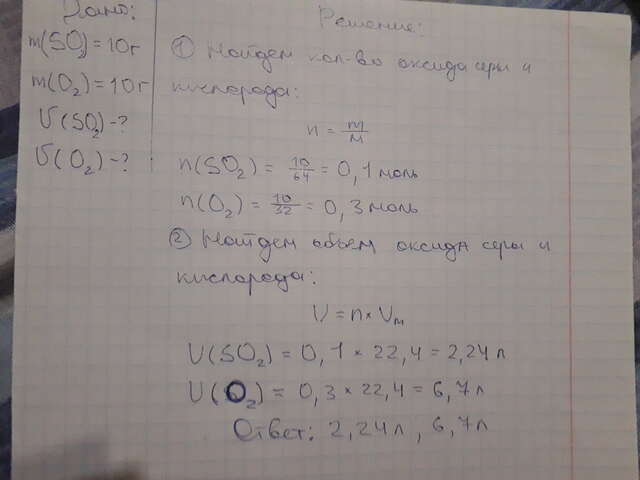 Дано:
m(SO₂) = 10г
m(O₂) = 10г
V(SO₂) - ?
V(O₂) - ?
Решение:
① Найдем кол-во оксида серы и
кислорода:
n = m/M
n(SO₂) = 10/64 = 0,1 моль
n(O₂) = 10/32 = 0,3 моль
② Найдем объем оксида серы и
кислорода:
V = n × Vм
V(SO₂) = 0,1 × 22,4 = 2,24 л
V(O₂) = 0,3 × 22,4 = 6,7 л
Ответ: 2,24л, 6,7л